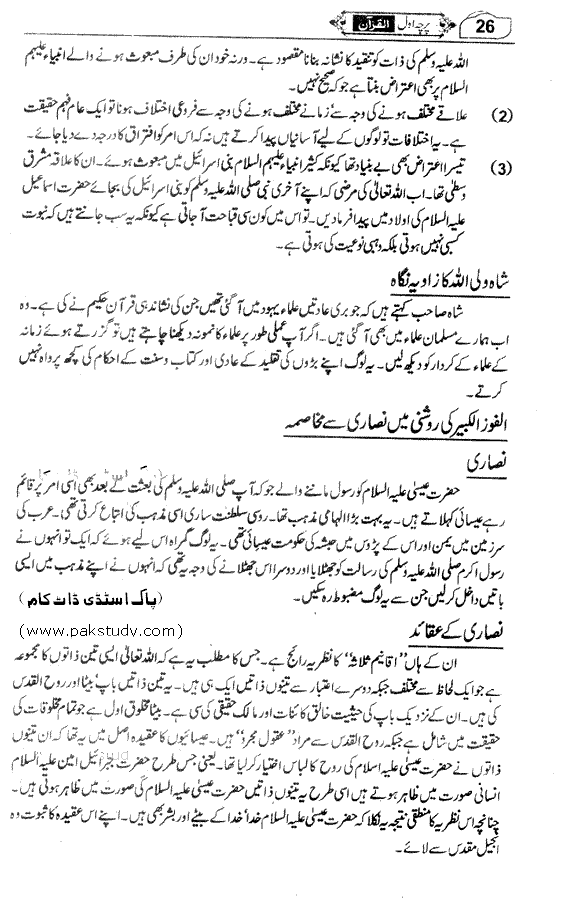 26 پرچہ اول القرآن
اللہ علیہ وسلم کی ذات کو تنقید کا نشانہ بنانا مقصود ہے۔ ورنہ خود ان کی طرف مبعوث ہونے والے انبیاء علیہم
السلام پر بھی اعتراض بنتا ہے جو کہ صحیح نہیں۔
(2) علاقے مختلف ہونے کی وجہ سے زمانے مختلف ہونے کی وجہ سے فروعی اختلاف ہونا تو ایک عام فہم حقیقت
ہے۔ یہ اختلافات تو لوگوں کے لیے آسانیاں پیدا کرتے ہیں نہ کہ اس امر کو افتراق کا درجہ دے دیا جائے۔
(3) تیسرا اعتراض بھی بے بنیاد تھا کیونکہ کثیر انبیاء علیہم السلام بنی اسرائیل میں مبعوث ہوئے۔ ان کا علاقہ مشرق
وسطی تھا۔ اب اللہ تعالیٰ کی مرضی کہ اپنے آخری نبی صلی اللہ علیہ وسلم کو بنی اسرائیل کی بجائے حضرت اسماعیل
علیہ السلام کی اولاد میں پیدا فرما دیں۔ تو اس میں کون سی قباحت آ جاتی ہے کیونکہ یہ سب جانتے ہیں کہ نبوت
کسبی نہیں ہوتی بلکہ وہبی نوعیت کی ہوتی ہے۔
شاہ ولی اللہ کا زاویہ نگاہ
شاہ صاحب کہتے ہیں کہ جو بری عادتیں علماء یہود میں آ گئی تھیں جن کی نشاندہی قرآن حکیم نے کی ہے۔ وہ
اب ہمارے مسلمان علماء میں بھی آ گئی ہیں۔ اگر آپ عملی طور پر علماء کا نمونہ دیکھنا چاہتے ہیں تو گزرتے ہوئے زمانہ
کے علماء کے کردار کو دیکھ لیں۔ یہ لوگ اپنے بڑوں کی تقلید کے عادی اور کتاب و سنت کے احکام کی کچھ پرواہ نہیں
کرتے۔
الفوز الکبیر کی روشنی میں نصاری سے مخاصمہ
نصاری
حضرت عیسیٰ علیہ السلام کو رسول ماننے والے جو کہ آپ صلی اللہ علیہ وسلم کی بعثت کے بعد بھی اسی امر پر قائم
رہے عیسائی کہلاتے ہیں۔ یہ بہت بڑا الہامی مذہب تھا۔ رومی سلطنت ساری اسی مذہب کی اتباع کرتی تھی۔ عرب کی
سرزمین میں یمن اور اس کے پڑوس میں حبشہ کی حکومت عیسائی تھی۔ یہ لوگ گمراہ اس لیے ہوئے کہ ایک تو انہوں نے
رسول اکرم صلی اللہ علیہ وسلم کی رسالت کو جھٹلایا اور دوسرا اس جھٹلانے کی وجہ یہ تھی کہ انہوں نے اپنے مذہب میں ایسی
باتیں داخل کر لیں جن سے یہ لوگ مضبوط رہ سکیں۔ (پاک اسٹڈی ڈاٹ کام)
نصاری کے عقائد (www.pakstudy.com)
ان کے ہاں "اقانیم ثلاثہ" کا نظریہ رائج ہے۔ جس کا مطلب یہ ہے کہ اللہ تعالیٰ ایسی تین ذاتوں کا مجموعہ
ہے جو ایک لحاظ سے مختلف جبکہ دوسرے اعتبار سے تینوں ذاتیں ایک ہی ہیں۔ یہ تین ذاتیں باپ بیٹا اور روح القدس
کی ہیں۔ ان کے نزدیک باپ کی حیثیت خالق کائنات اور مالک حقیقی کی سی ہے۔ بیٹا مخلوق اول ہے جو تمام مخلوقات کی
حقیقت میں شامل ہے جبکہ روح القدس سے مراد "عقول مجردہ" ہیں۔ عیسائیوں کا عقیدہ اصل میں یہ تھا کہ ان تینوں
ذاتوں نے حضرت عیسیٰ علیہ اسلام کی روح کا لباس اختیار کر لیا تھا۔ یعنی جس طرح حضرت جبرائیل امین علیہ السلام
انسانی صورت میں ظاہر ہوتے ہیں اسی طرح یہ تینوں ذاتیں حضرت عیسیٰ علیہ السلام کی صورت میں ظاہر ہوتی ہیں۔
چنانچہ اس نظریہ کا منطقی نتیجہ یہ نکلا کہ حضرت عیسیٰ علیہ السلام خدا' خدا کے بیٹے اور بشر بھی ہیں۔ اپنے اس عقیدہ کا ثبوت وہ
انجیل مقدس سے لائے۔